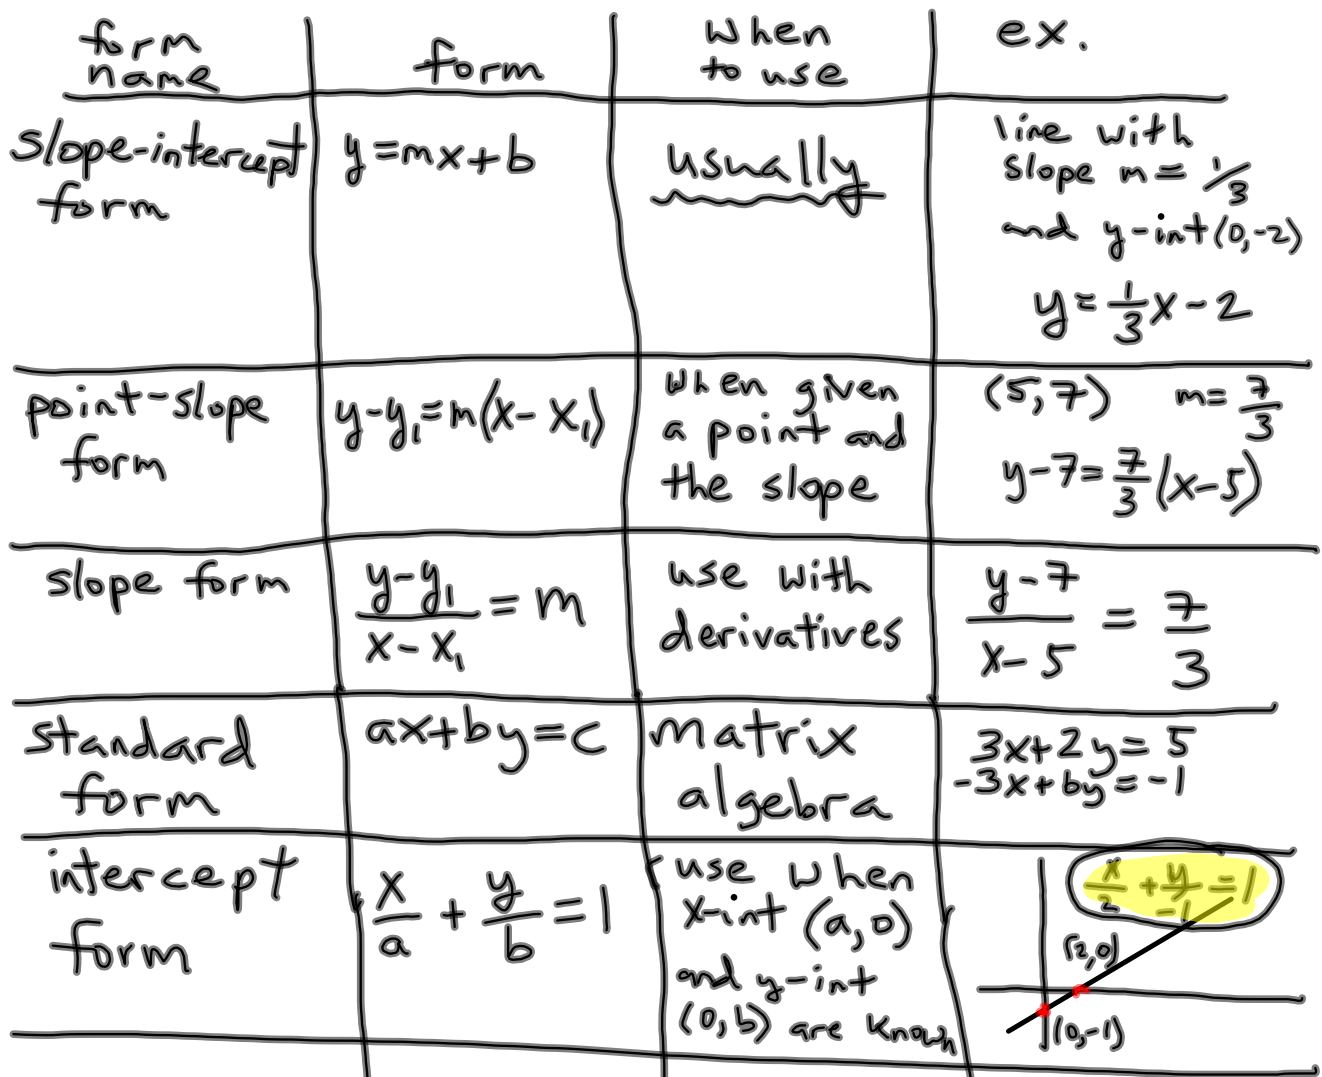 form name
form
when to use
ex.
slope-intercept form
y=mx+b
usually
line with
slope m = 1/3
and y-int (0,-2)
y = 1/3 x - 2
point-slope form
y-y₁=m(x-x₁)
when given
a point and
the slope
(5,7) m= 7/3
y-7= 7/3 (x-5)
slope form
(y-y₁)/(x-x₁) = m
use with
derivatives
(y-7)/(x-5) = 7/3
standard form
ax+by=c
matrix
algebra
3x+2y=5
-3x+by=-1
intercept form
x/a + y/b = 1
use when
x-int (a,0)
and y-int
(0,b) are known
x/2 + y/-1 = 1
(2,0)
(0,-1)